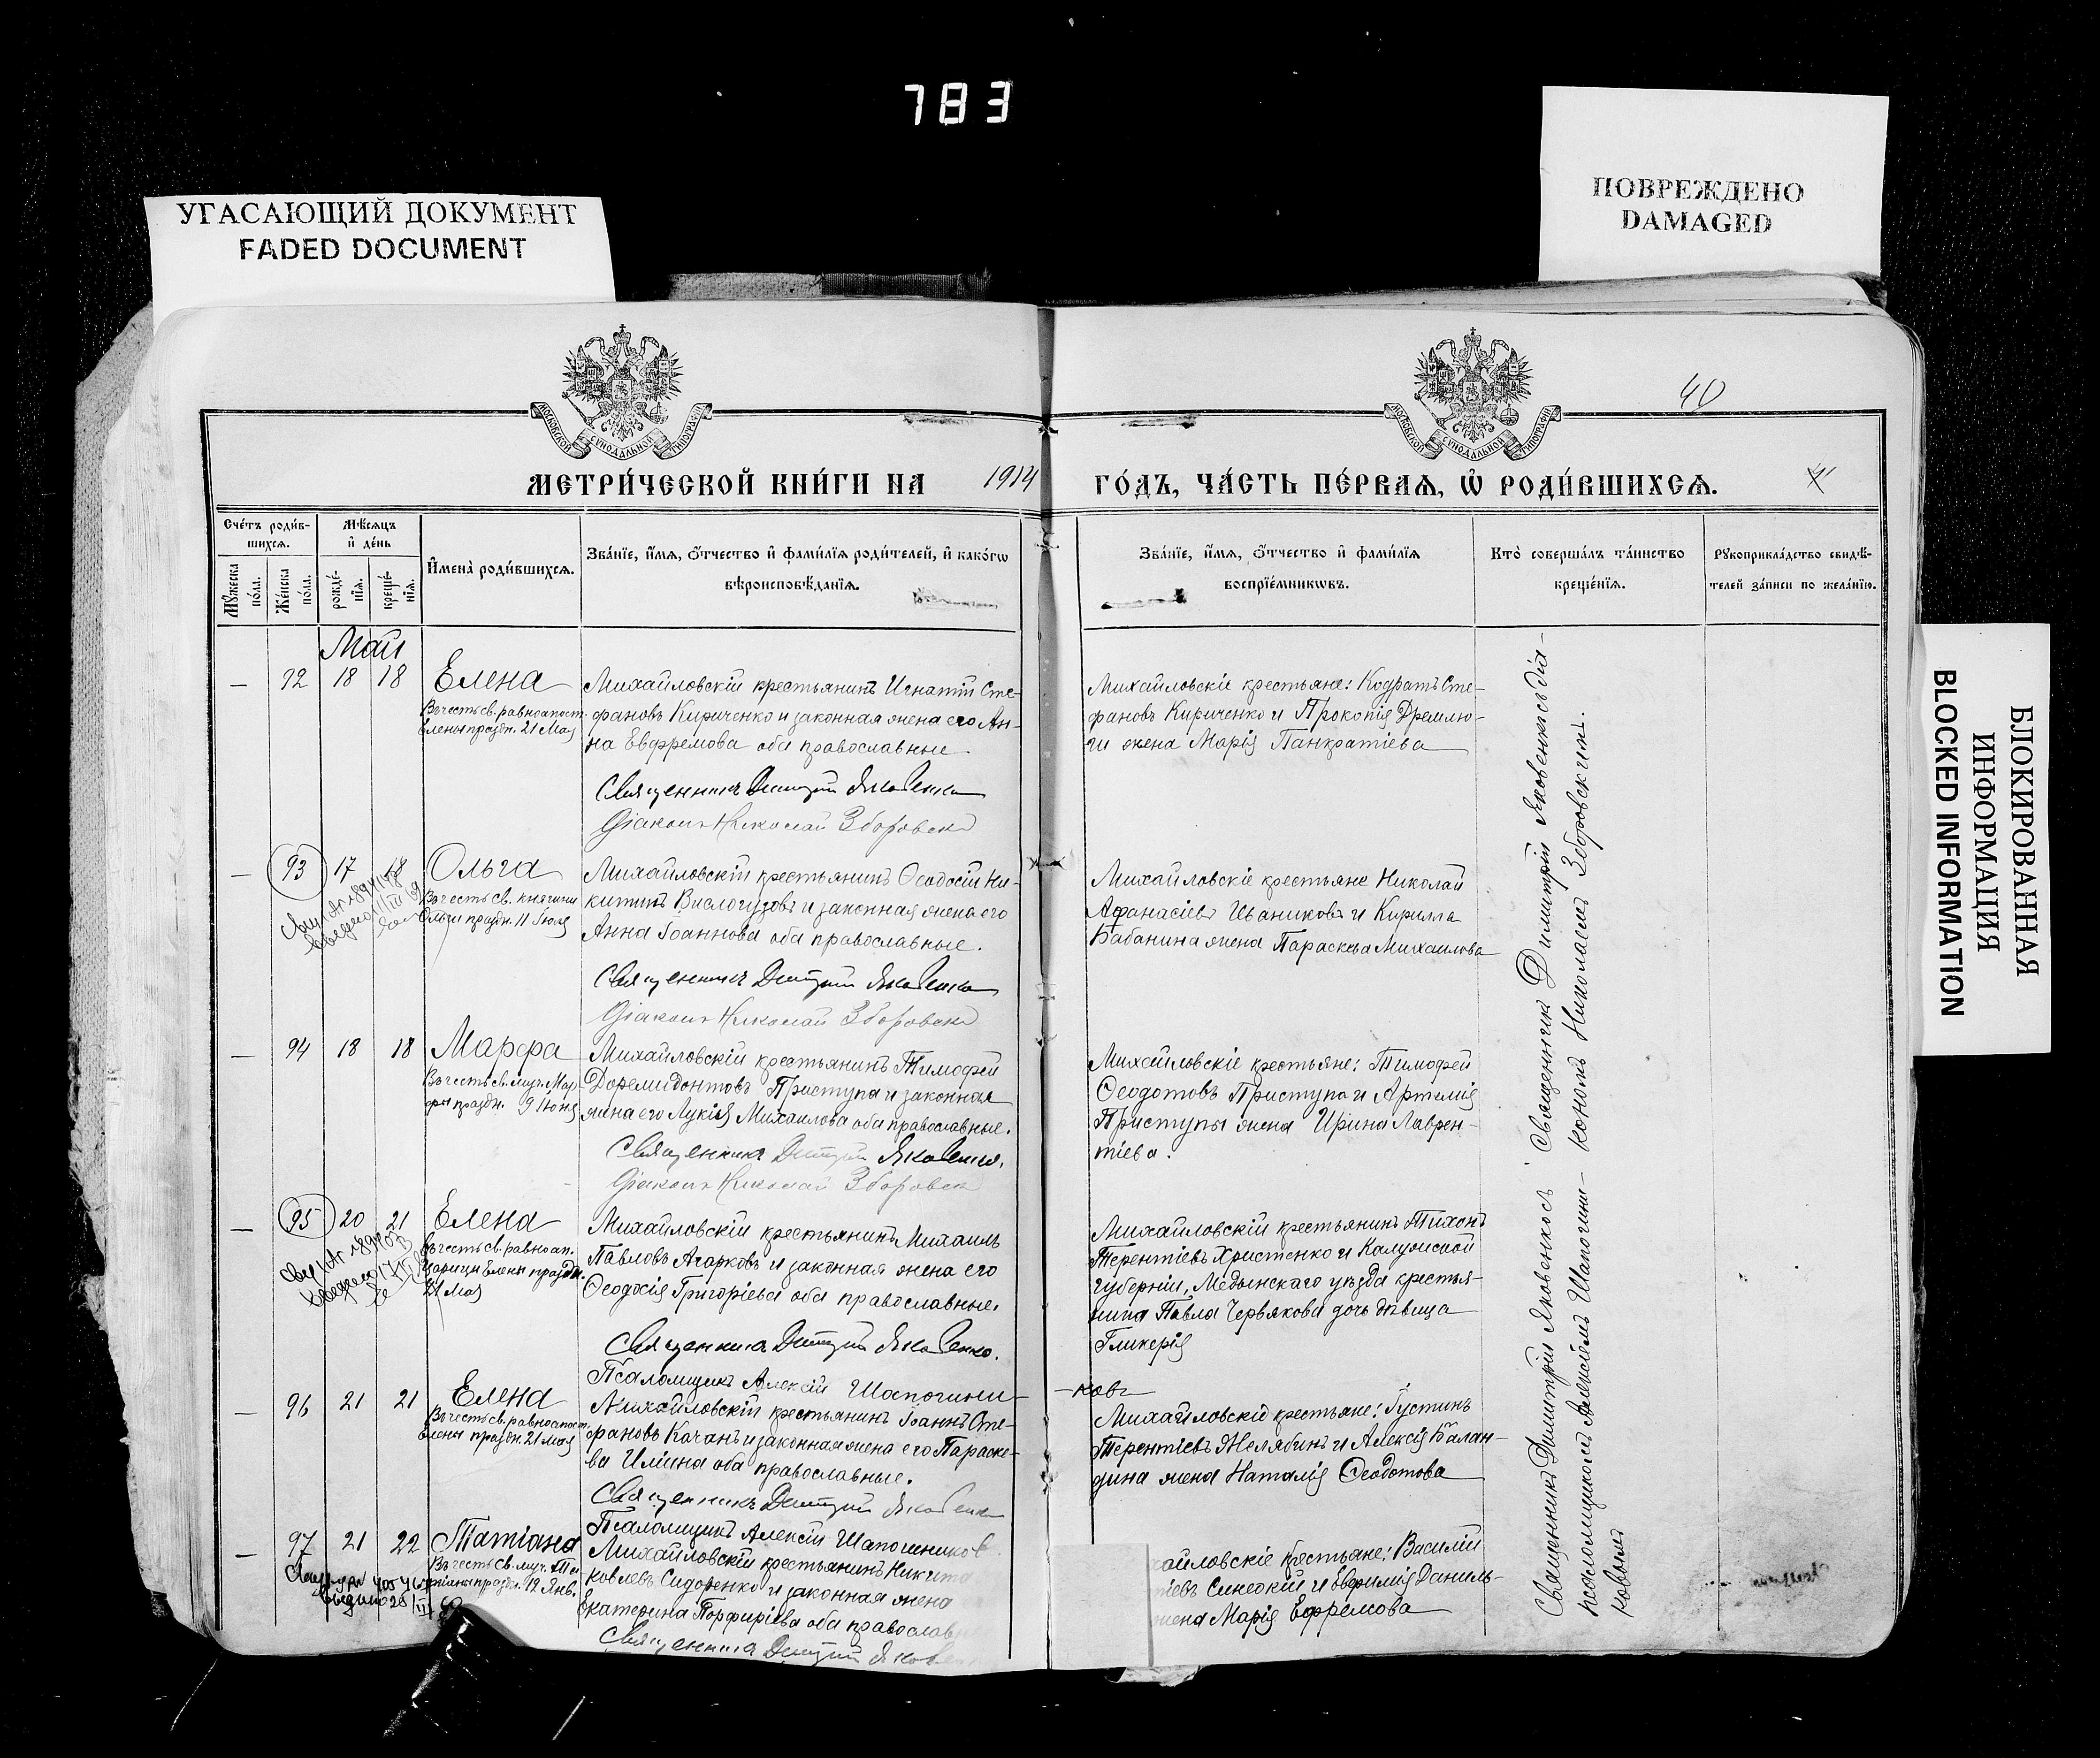 783
УГАСАЮЩИЙ ДОКУМЕНТ
FADED DOCUMENT
ПОВРЕЖДЕНО
DAMAGED
БЛОКИРОВАННАЯ
ИНФОРМАЦИЯ
BLOCKED INFORMATION
МОСКОВСКОЙ СѴНОДАЛЬНОЙ ТИПОГРАФІИ
МОСКОВСКОЙ СѴНОДАЛЬНОЙ ТИПОГРАФІИ
40
МЕТРИ́ЧЕСКОЙ КНИ́ГИ НА 1914 ГО́ДЪ, ЧА́СТЬ ПЕ́РВАѦ, Ѡ҆ РОДИ́ВШИХСѦ.
Сче́тъ роди́в-
шихсѧ.
Мꙋ́жеска по́ла.
Же́нска по́ла.
Мѣ́сѧцъ
и҆ де́нь
рожде́-
нїѧ.
креще́-
нїѧ.
И҆мена̀ роди́вшихсѧ.
Зва́нїе, и҆́мѧ, ѻ҆́тчество и҆ фами́лїѧ роди́телей, и҆ како́гѡ
вѣроисповѣ́данїѧ.
Зва́нїе, и҆́мѧ, ѻ҆́тчество и҆ фами́лїѧ
воспрїе́мникѡвъ.
Кто̀ соверша́лъ та́инство
креще́нїѧ.
Рꙋкоприкла́дство свидѣ́-
телей за́писи по жела́нїю.
Май
— 92 18 18 Елена
Въ честь св. равноапост.
Елены праздн. 21 Мая
Михайловскій крестьянинъ Игнатій Сте-
фановъ Кириченко и законная жена его Ан-
на Евфремова оба православные.
Священникъ Димитрій Яковенко
Діаконъ Николай Зборовскі
Михайловскіе крестьяне: Кодратъ Сте-
фановъ Кириченко и Прокопія Дремлю-
ги жена Марія Панкратіева
— 93 17 18 Ольга
Въ честь св. княгини
Ольги праздн. 11 Іюля
Михайловскій крестьянинъ Ѳеодосій Ни-
китинъ Вислогузовъ и законная жена его
Анна Іоаннова оба православные.
Священникъ Димитрій Яковенко
Діаконъ Николай Зборовскі
Михайловскіе крестьяне Николай
Афанасіевъ Иваниковъ и Кирилла
Бабанина жена Параскева Михаилова
— 94 18 18 Марфа
Въ честь св. муч. Мар-
фы праздн. 9 Іюня
Михайловскій крестьянинъ Тимофей
Доремидонтовъ Приступа и законная
жена его Лукія Михаилова оба православные.
Священникъ Димитрій Яковенко.
Діаконъ Николай Зборовскі
Михайловскіе крестьяне: Тимофей
Ѳеодотовъ Приступа и Артемія
Приступы жена Ирина Лаврен-
тіева.
— 95 20 21 Елена
Въ честь св. равноап.
Царицы Елены праздн.
21 Мая
Михайловскій крестьянинъ Михаилъ
Павловъ Агарковъ и законная жена его
Ѳеодосія Григоріева оба православные.
Священникъ Димитрій Яковенко.
Псаломщикъ Алексій Шапошни-
ковъ
Михайловскій крестьянинъ Тихонъ
Терентіевъ Христенко и Калужской
губерніи, Медынскаго уѣзда крестья-
нина Павла Червякова дочь дѣвица
Гликерія
— 96 21 21 Елена
Въ честь св. равноапост.
Елены праздн. 21 мая
Михайловскій крестьянинъ Іоаннъ Сте-
фановъ Качанъ и законная жена его Параске-
ва Илiина оба православные.
Священникъ Димитрій Яковенко
Псаломщикъ Алексій Шапошниковъ
Михайловскіе крестьяне: Густинъ
Терентіевъ Желябинъ и Алексія Балан-
дина жена Наталія Ѳеодотова
— 97 21 22 Татіана
Въ честь св. муч. Та-
тіаны праздн. 12 Янв.
Михайловскій крестьянинъ Никита
ковлевъ Сидоренко и законная жена
Екатерина Порфиріева оба православ
Священникъ Димитрій Яков
хайловскіе крестьяне: Василій
тіевъ Синеокій и Евфимія Даниль-
жена Марія Ефремова
Священникъ Димитрій Яковенко съ діа-
кономъ Николаемъ Зборовскимъ.
Священникъ Димитрій Яковенко съ
псаломщикомъ Алексіемъ Шапошни-
ковымъ